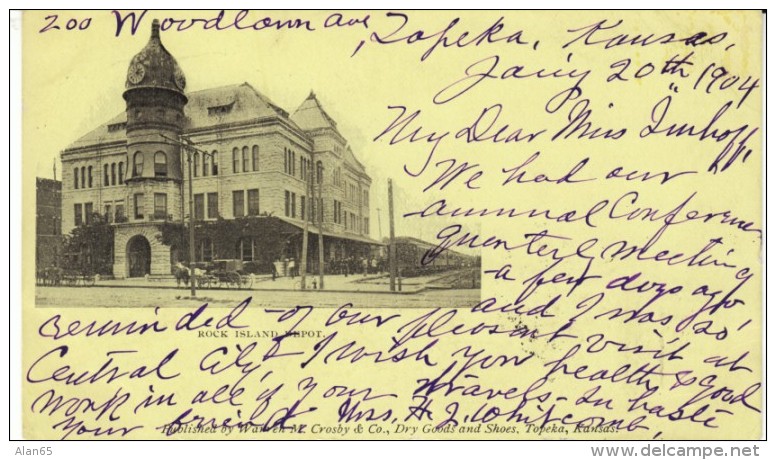 200 Woodlawn ave
, Topeka, Kansas,
Jan'y 20th 1904
My Dear Miss Imhoff,
We had our
annual Conference
Quarterly meeting
a few days ago,
and I was so
reminded of our pleasant visit at
ROCK ISLAND DEPOT.
Central City, I wish you health & good
work in all of your travels - In haste
your friend Mrs. H. J. Whitcomb,
Published by Warren M. Crosby & Co., Dry Goods and Shoes, Topeka, Kansas.
Alan65
© www.delcampe.net